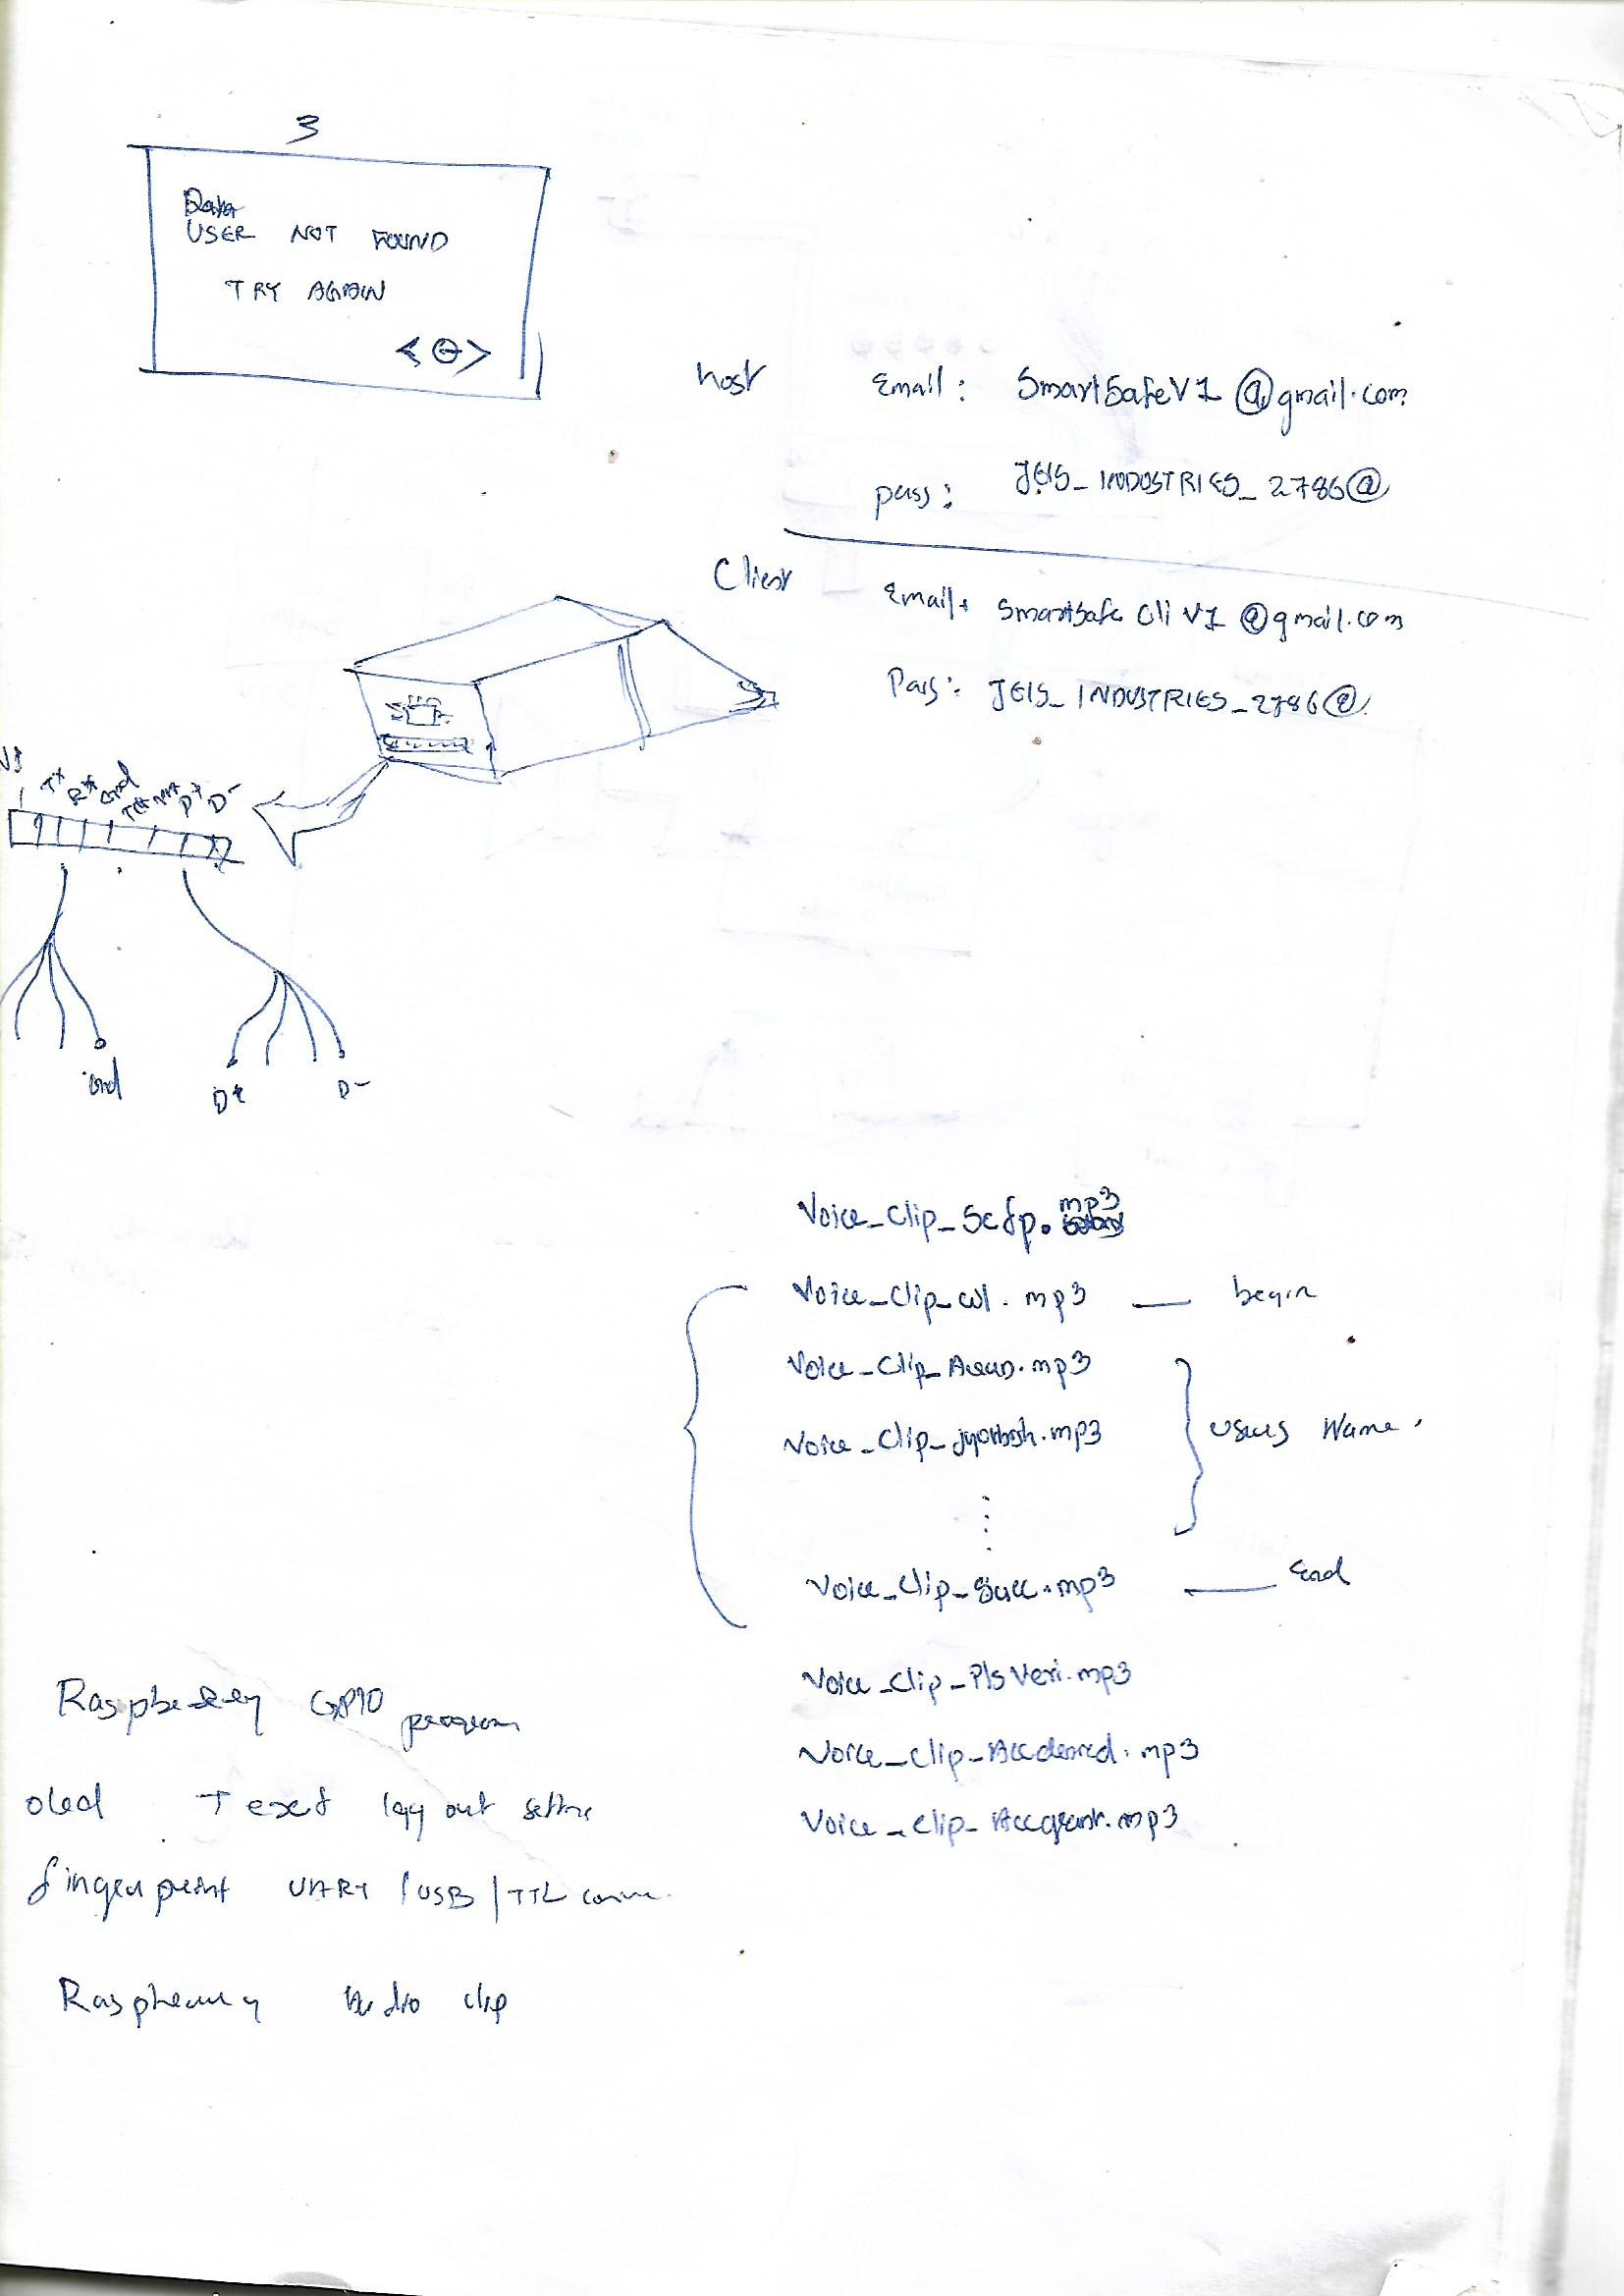 3
Data
USER NOT FOUND
TRY AGAIN
host Email: SmartSafeV1@gmail.com
pass: JEIS_INDUSTRIES_2786@
Client Email: SmartSafe Cli V1@gmail.com
Pass: JEIS_INDUSTRIES_2786@
Gnd
D+ D-
Gnd
D+ D-
Voice_Clip_Scfp.mp3
Voice_Clip_wl.mp3 — begin
Voice_Clip_mp3
Voice_Clip_.mp3
Name
Voice_Clip_Succ.mp3 — End
Voice_Clip_PlsVeri.mp3
Voice_Clip_Accdenied.mp3
Voice_Clip_Accgrant.mp3
Raspberry GPIO program
oled Text layout
fingerprint UART/USB/TTL
Raspberry Audio clip